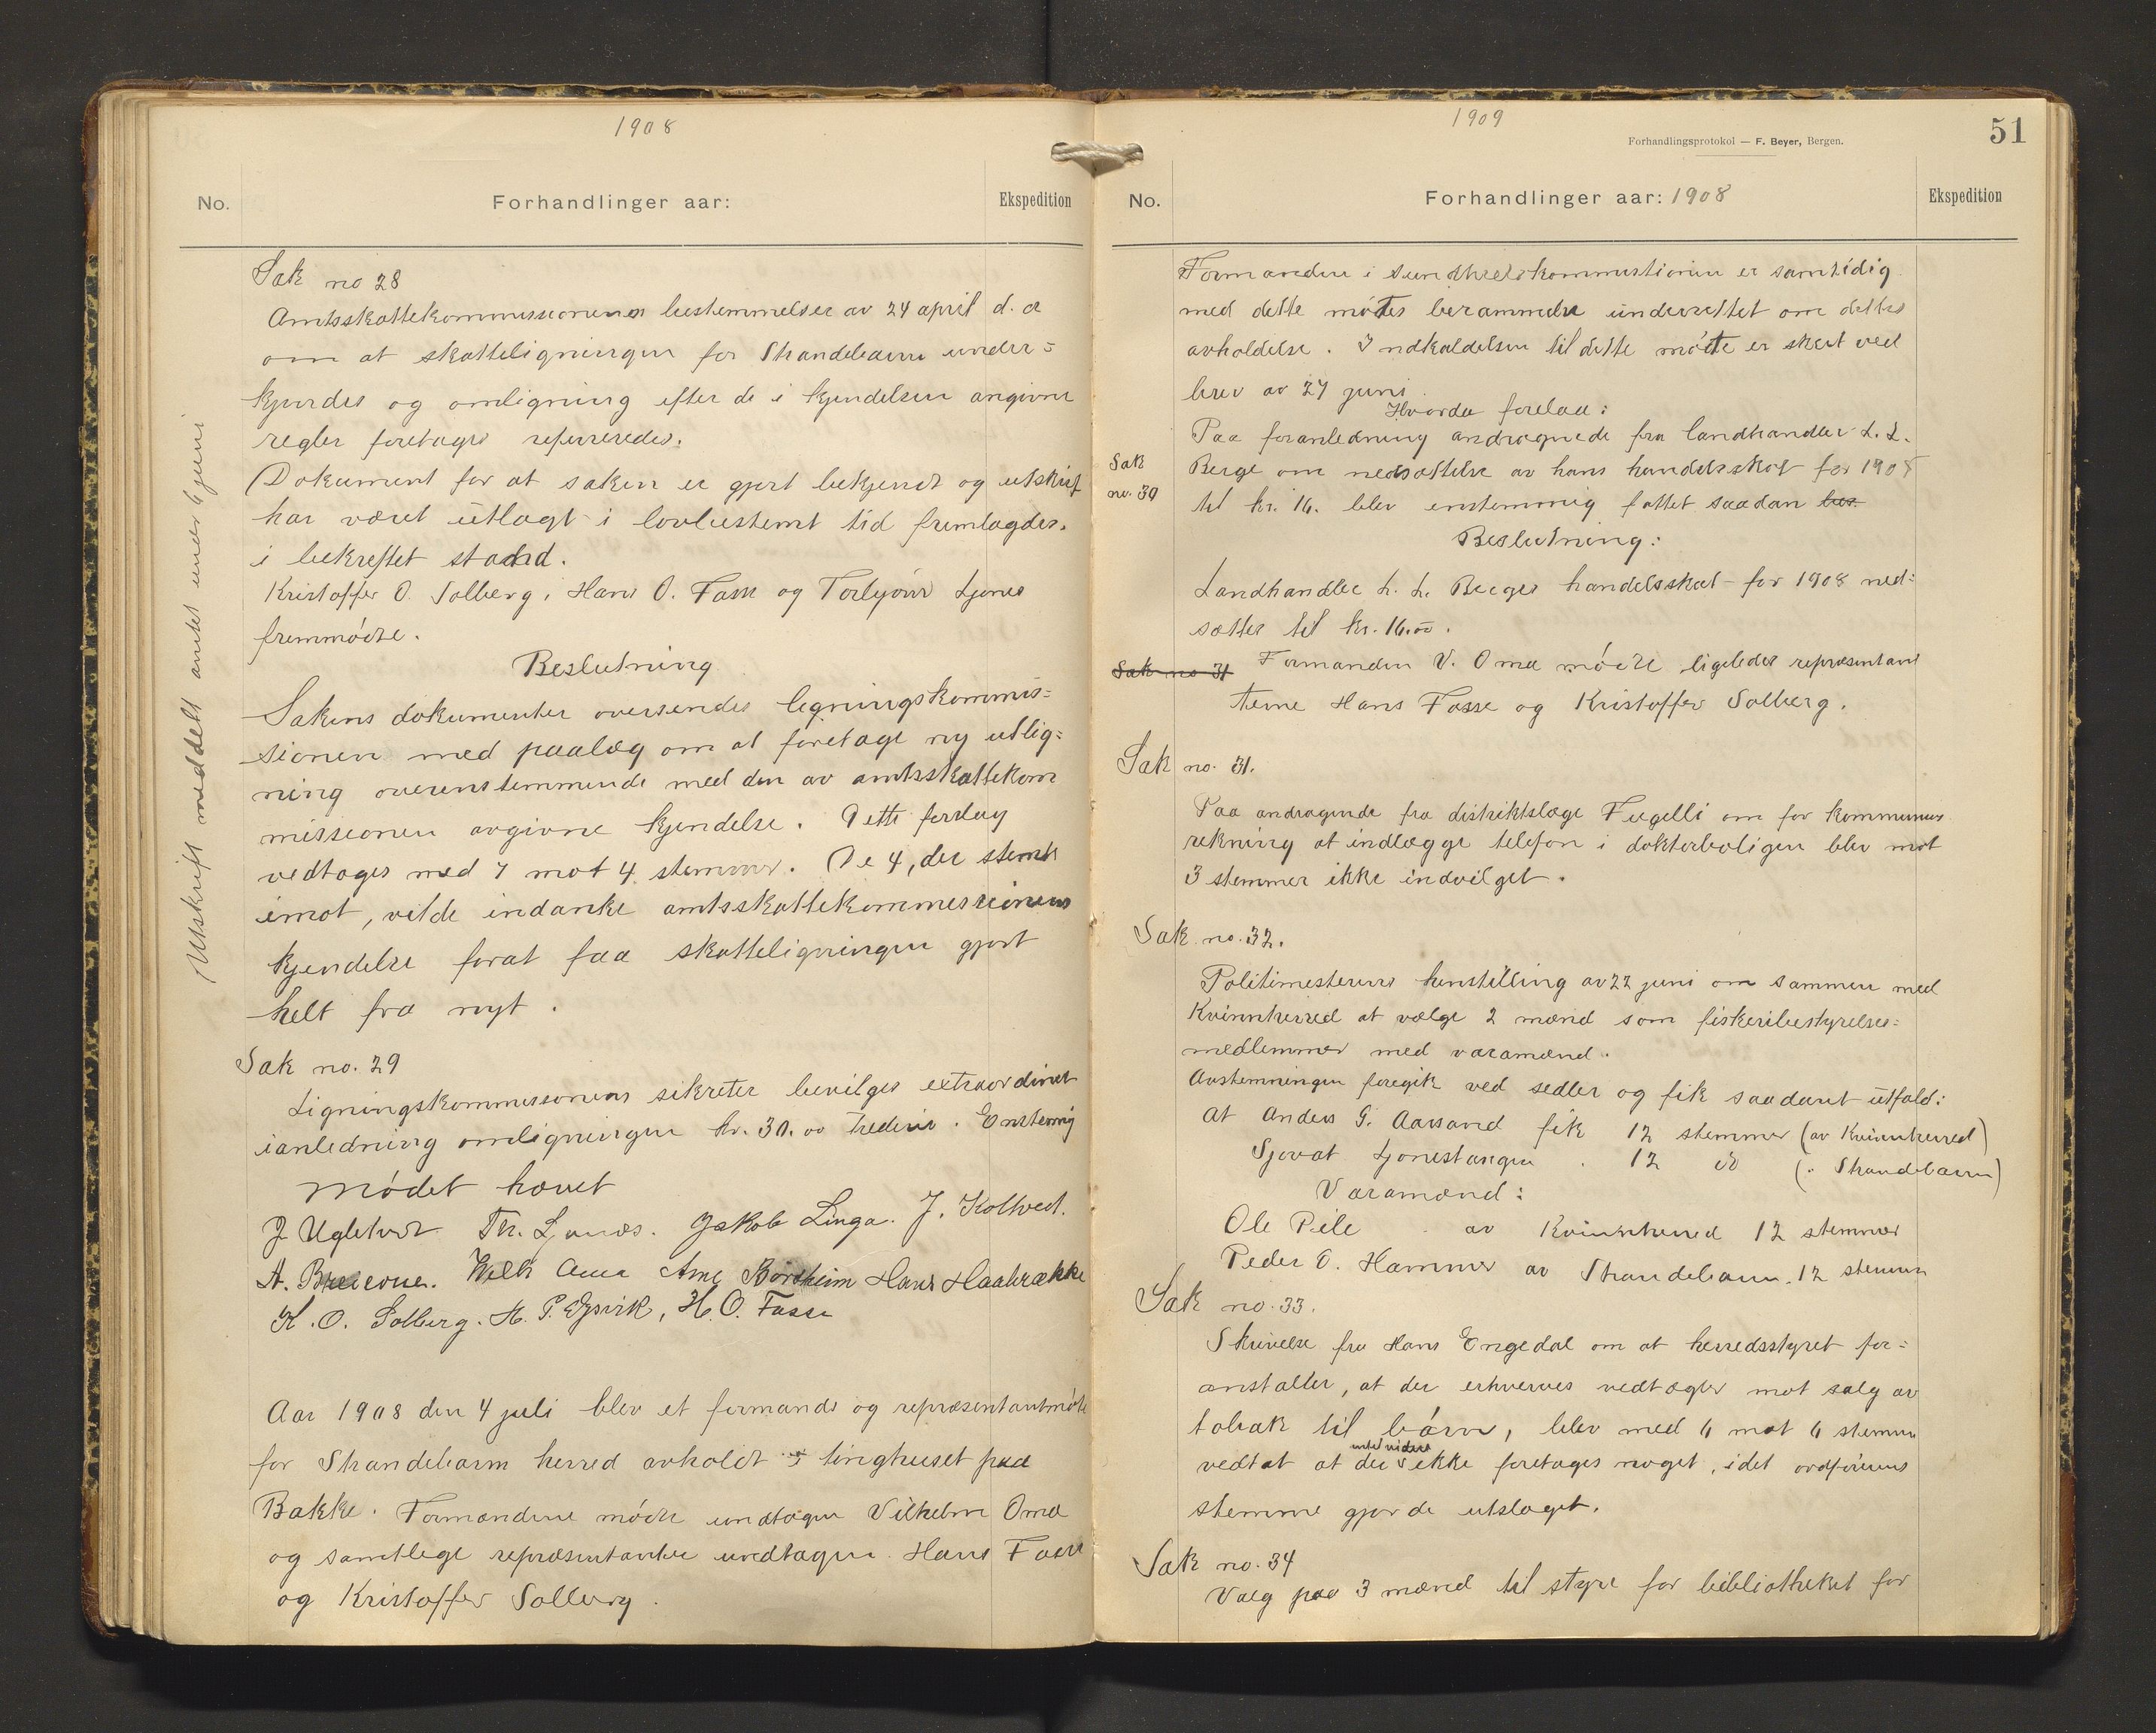 1908
No.
Forhandlinger aar:
Ekspedition
Utskrift meddelt amtet under 6 juni
Sak no 28
Amtsskattekommissionens bestemmelser av 24 april d. a
om at skatteligningen for Strandebarm under=
kjendes og omligning efter de i kjendelsen angivne
regler foretages refereredes.
Dokument for at saken er gjort bekjendt og utskrift
har været utlagt i lovbestemt tid fremlagdes
i bekreftet stand.
Kristoffer O. Solberg, Hans O. Fosse og Torbjörn Ljones
fremmödte.
Beslutning
Sakens dokumenter oversendes ligningskommis=
sionen med paalæg om at foretage ny utlig=
ning overenstemmende med den av amtsskattekom
missionen avgivne kjendelse. Dette forslag
vedtages med 7 mot 4 stemmer. De 4, der stemte
imot, vilde indanke amtsskattekommissionens
kjendelse forat faa skatteligningen gjort
helt fra nyt.
Sak no. 29
Ligningskommissionens sekretær bevilges extraordinært
ianledning omligningen kr. 30.00 tredive. Enstemig
Mödet hævet
J Uglehus Th. Ljones. Jakob Linga. J. Koltved.
A. Bru Vilh Oma Arne Börsheim Hans Haalrække
K. O. Solberg. H. P. Egsvik, H. O. Fosse
Aar 1908 den 4 juli blev et formands og repræsentantmöte
for Strandebarm herred avholdt i tinghuset paa
Bakke. Formændene mödte undtagen Vilhelm Oma
og samtlege repræsentanter undtagen Hans Fosse
og Kristoffer Solberg.
1909
Forhandlingsprotokol — F. Beyer, Bergen.
51
No.
Forhandlinger aar: 1908
Ekspedition
Formanden i sundhetskommistionen er samtidig
med dette mötes berammelse underrettet om dettes
avholdelse. Indkaldelsen til dette möte er skeet ved
brev av 27 juni
Hvorda forelaa:
Sak no. 30
Paa foranledning andragende fra landhandler L. L.
Berge om nedsættelse av hans handelsskat for 1908
til kr. 16. blev enstemmig fattet saadan bes
Beslutning:
Landhandler L. L. Berges handelsskat for 1908 ned=
sættes til kr. 16.00.
Sak no 31
Formanden V. Oma mödte ligeledes repræsentant
terne Hans Fosse og Kristoffer Solberg.
Sak no. 31.
Paa andragende fra distriktslæge Fugelli om for kommunens
rekning at indlægge telefon i doktorboligen blev mot
3 stemmer ikke indvilget.
Sak no. 32.
Politimesterens henstilling av 22 juni om sammen med
Kvinnherred at vælge 2 mænd som fiskeribestyrelses=
medlemmer med varamænd.
Avstemningen foregik ved sedler og fik saadant utfald:
At Anders G. Aarsand fik 12 stemmer (av Kvinnherred)
Sjovat Ljonestangen . 12 do (" Strandebarm)
Varamænd:
Ole Pile av Kvinnherred 12 stemmer
Peder O. Hammer av Strandebarm. 12 stemmer
Sak no. 33.
Skrivelse fra Hans Engedal om at herredsstyret for=
anstalter, at der erhverves vedtægter mot salg av
tobak til börn, blev med 6 mot 6 stemmer
vedtat at der indtil videre ikke foretages noget, idet ordförerens
stemme gjorde utslaget.
Sak no. 34
Valg paa 3 mænd til styre for bibliotheket for